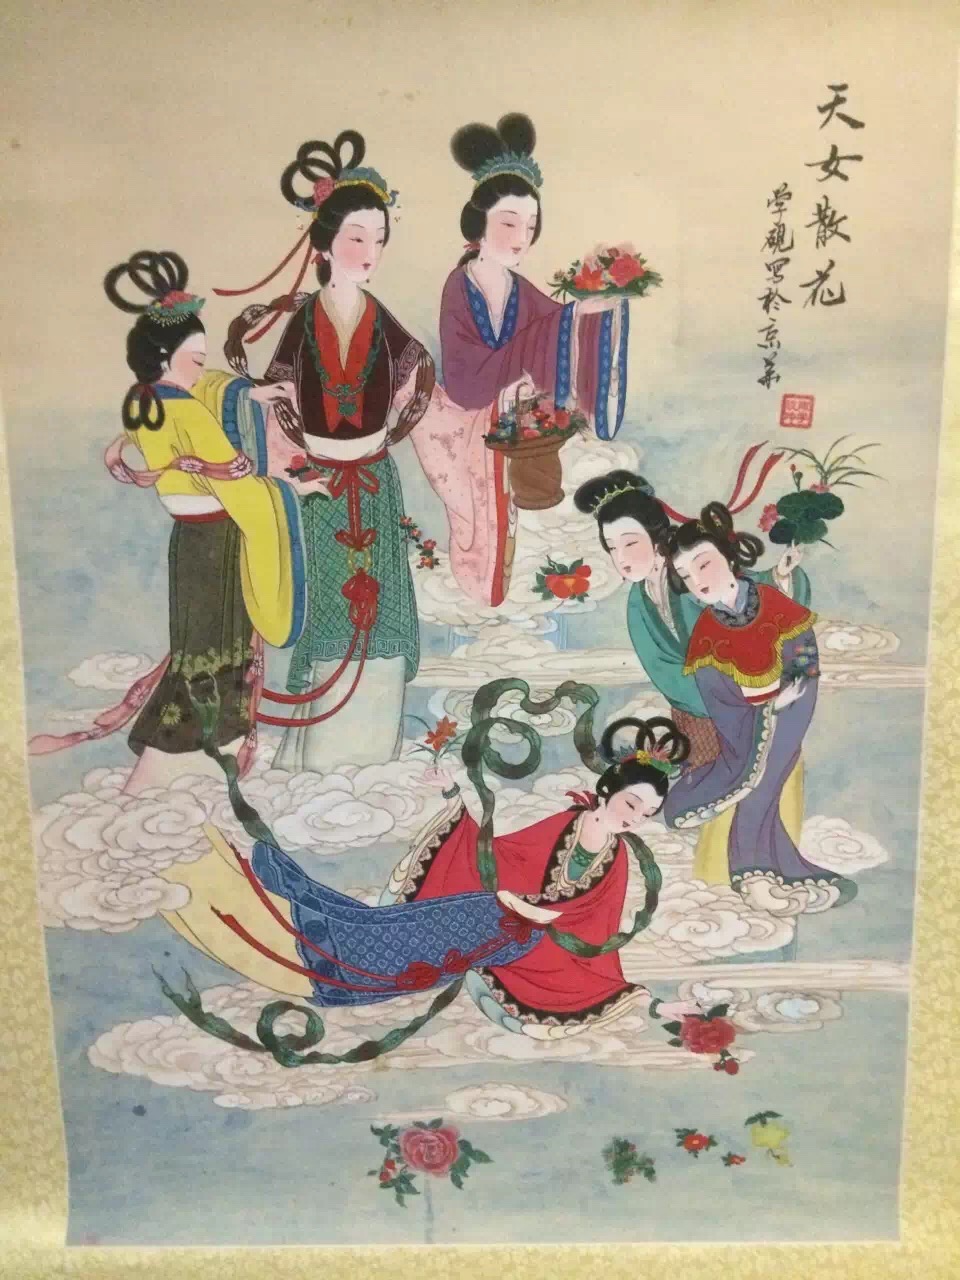 天女散花
学砚写於京华